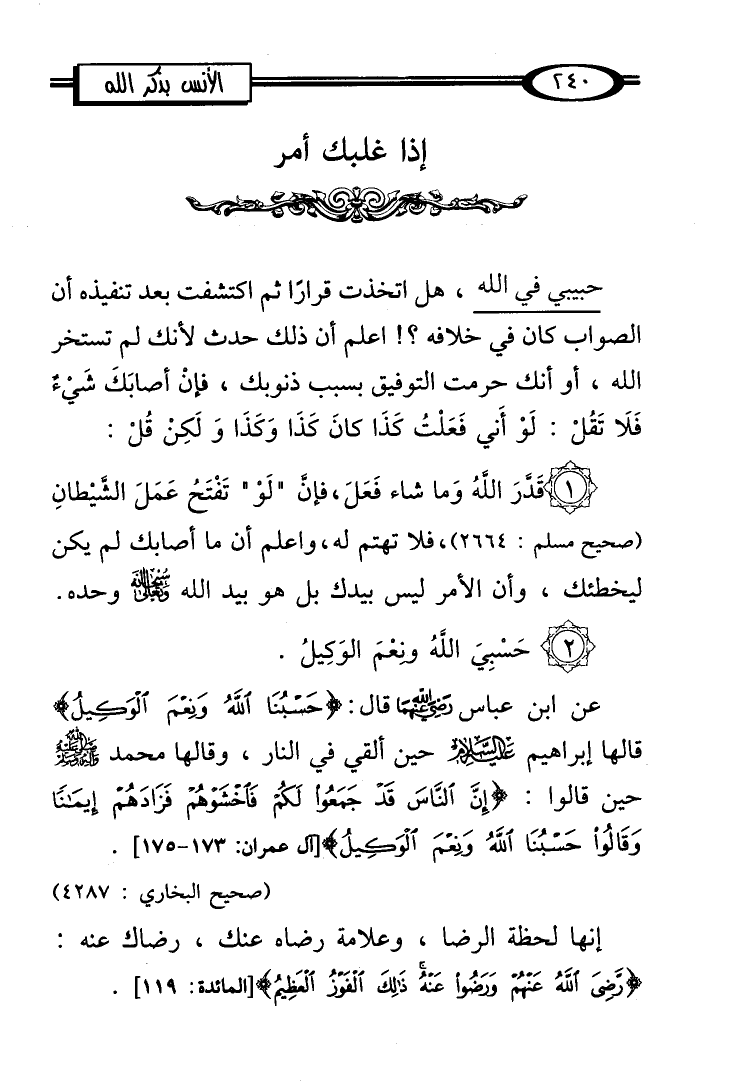 ٢٤٠
الأنس بذكر الله
إذا غلبك أمر
حبيبي في الله ، هل اتخذت قرارًا ثم اكتشفت بعد تنفيذه أن
الصواب كان في خلافه ؟! اعلم أن ذلك حدث لأنك لم تستخر
الله ، أو أنك حرمت التوفيق بسبب ذنوبك ، فإنْ أصابَكَ شَيْءٌ
فَلَا تَقُلْ : لَوْ أَني فَعَلْتُ كَذَا كانَ كَذَا وَكَذَا وَ لَكِنْ قُلْ :
١ قَدَّرَ اللَّهُ وَما شاء فَعَلَ، فإنَّ "لَوْ" تَفْتَحُ عَمَلَ الشَّيْطانِ
(صحيح مسلم : ٢٦٦٤)، فلا تهتم له، واعلم أن ما أصابك لم يكن
ليخطئك ، وأن الأمر ليس بيدك بل هو بيد الله سبحانه وتعالى وحده.
٢ حَسْبِيَ اللَّهُ ونِعْمَ الوَكِيلُ .
عن ابن عباس رضي الله عنهما قال: ﴿حَسْبُنَا ٱللَّهُ وَنِعْمَ ٱلْوَكِيلُ﴾
قالها إبراهيم عليه السلام حين ألقي في النار ، وقالها محمد صلى الله عليه وسلم
حين قالوا : ﴿إِنَّ ٱلنَّاسَ قَدْ جَمَعُوا۟ لَكُمْ فَٱخْشَوْهُمْ فَزَادَهُمْ إِيمَٰنًا
وَقَالُوا۟ حَسْبُنَا ٱللَّهُ وَنِعْمَ ٱلْوَكِيلُ﴾[آل عمران: ١٧٣-١٧٥] .
(صحيح البخاري : ٤٢٨٧)
إنها لحظة الرضا ، وعلامة رضاه عنك ، رضاك عنه :
﴿رَّضِىَ ٱللَّهُ عَنْهُمْ وَرَضُوا۟ عَنْهُ ۚ ذَٰلِكَ ٱلْفَوْزُ ٱلْعَظِيمُ﴾[المائدة: ١١٩] .